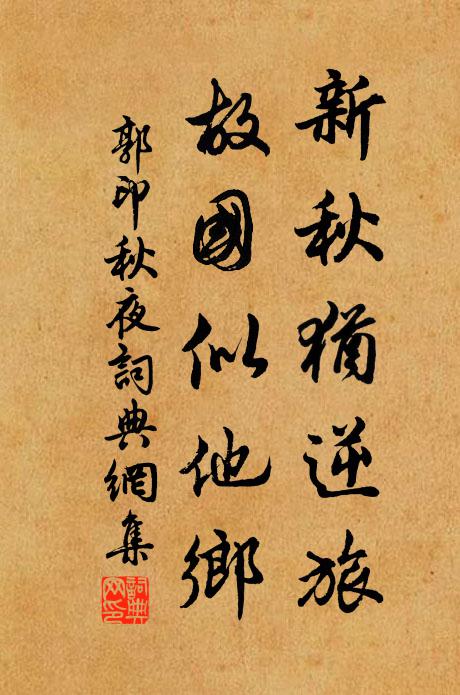 新秋猶逆旅
故國似他鄉
郭印秋夜詞典網集
詞典
网印